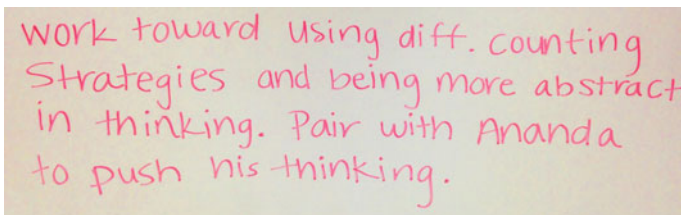 work toward using diff. counting
Strategies and being more abstract
in thinking. Pair with Ananda
to push his thinking.